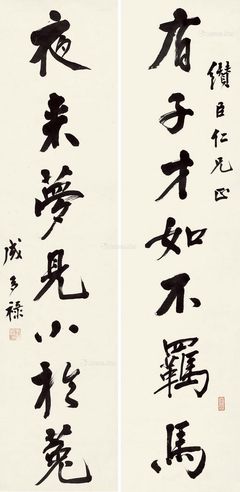 纘臣仁兄正
有子才如不羈馬
夜来夢見小於菟
成多祿